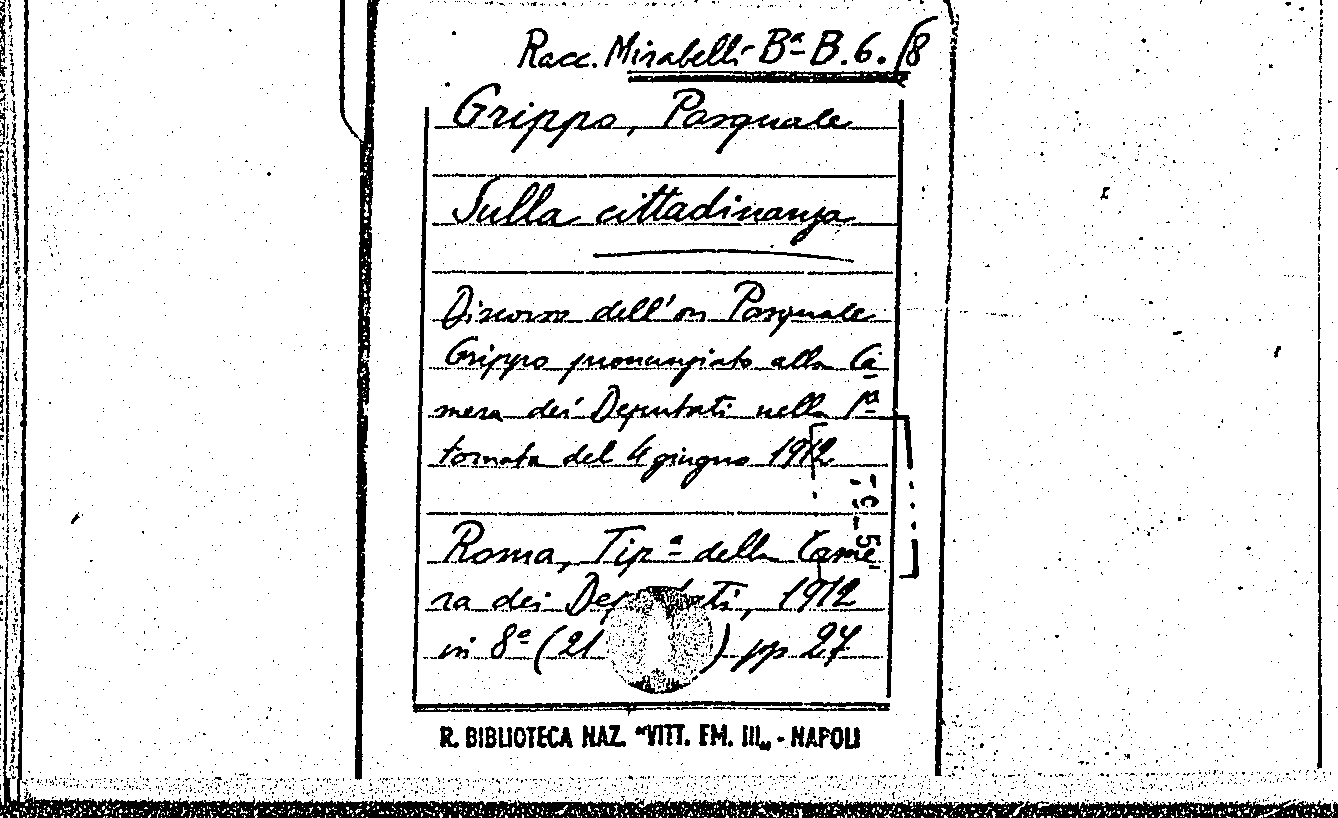 Racc. Mirabelli Bª B.6. /8
Grippo, Pasquale
Sulla cittadinanza
Discorso dell'on Pasquale
Grippo pronunziato alla Ca
mera dei Deputati nella 1ª
tornata del 4 giugno 1912
Roma, Tipª della Came
ra dei Deputati, 1912
in 8º (21 ) pp 27
R. BIBLIOTECA NAZ. "VITT. EM. III„ - NAPOLI